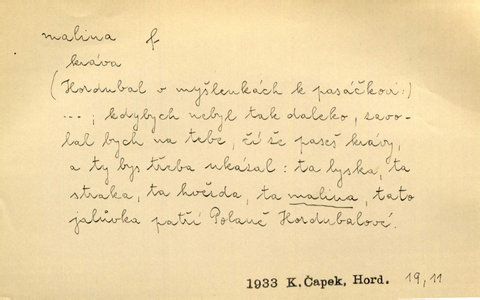 malina f
kráva
(Hordubal v myšlenkách k pasáčkovi:)
...; kdybych nebyl tak daleko, zavo-
lal bych na tebe, čí že paseš krávy,
a ty bys třeba ukázal: ta lyska, ta
straka, ta hvězda, ta malina, tato
jalůvka patří Polaně Hordubalové.
1933 K. Čapek, Hord. 19, 11